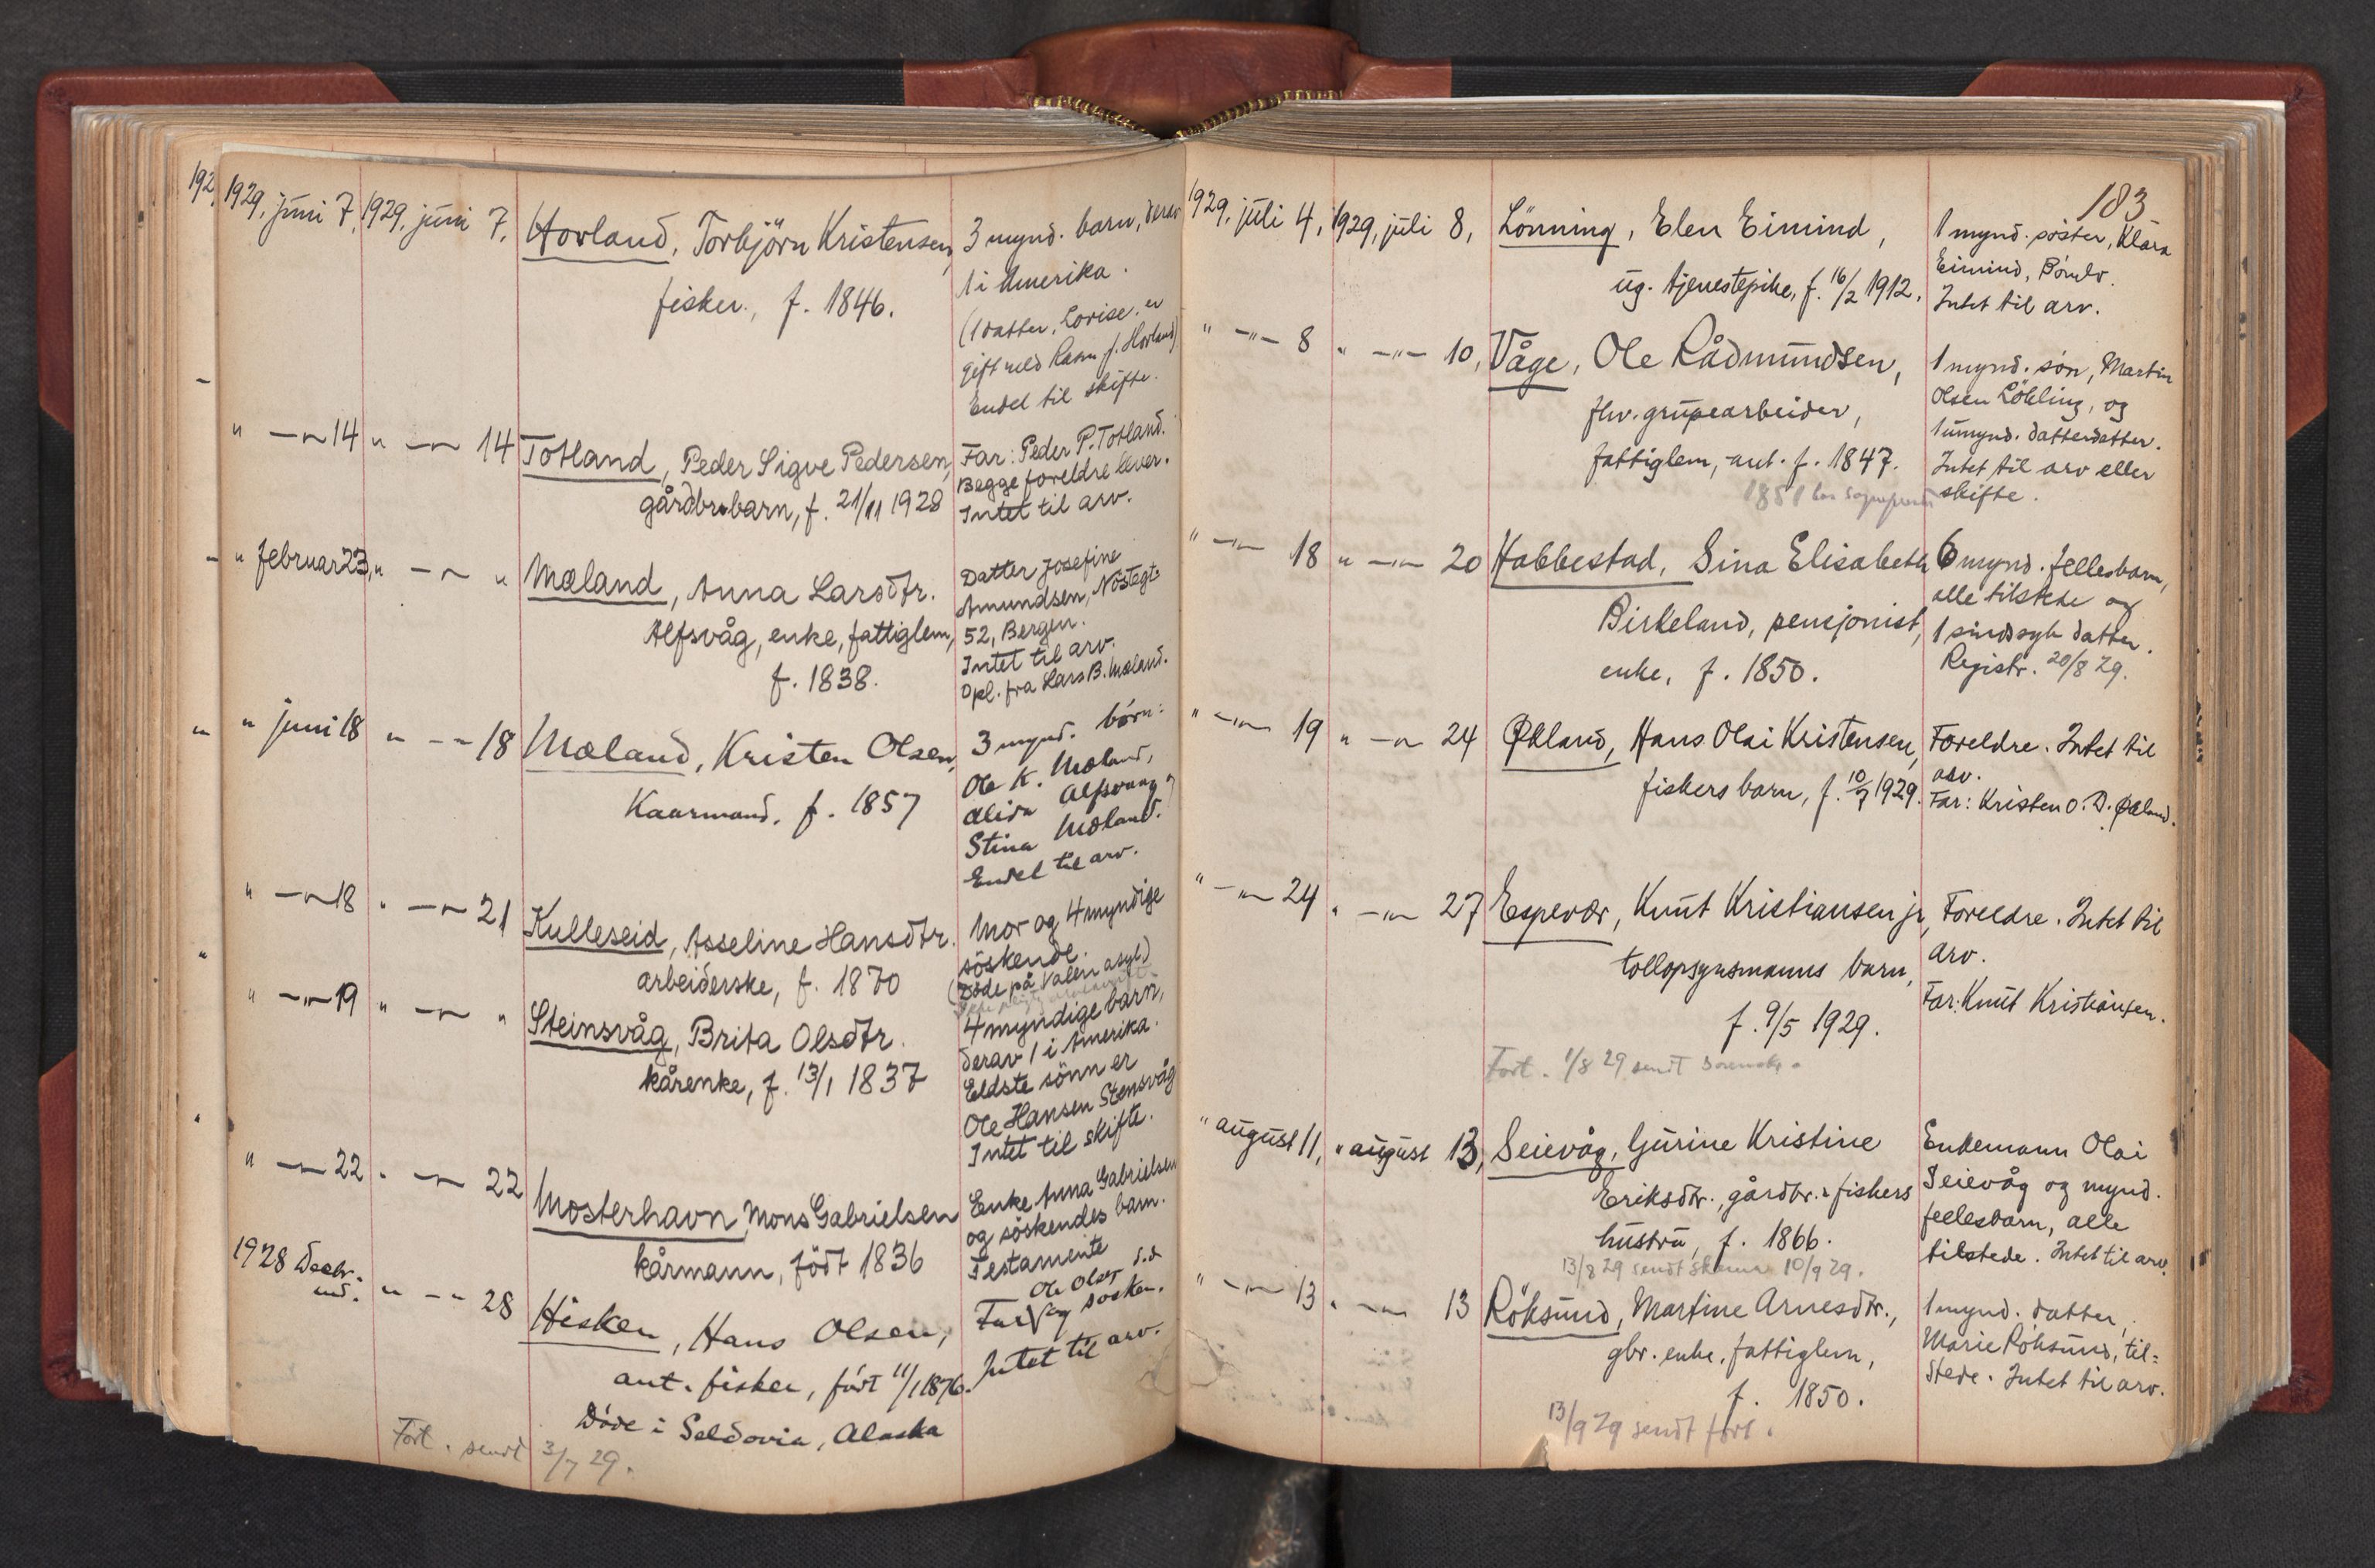 192
1929, juni 7, 1929, juni 7, Hovland, Torbjörn Kristensen, 3 mynd. barn, derav
fisker, f. 1846. 1 i Amerika.
(1 datter, Lovise, er
gift med Rasm. J. Hovland)
Endel til skifte.
" —"— 14 " —"— 14 Totland, Peder Sigve Pedersen, Far: Peder P. Totland.
gårdbr.barn, f. 21/11 1928 Begge foreldre lever.
Intet til arv.
" februar 23, " —"— " Mæland, Anna Larsdtr. Datter Josefine
Alfsvåg, enke, fattiglem, Amundsen, Nöstegt.
f. 1838. 52, Bergen.
Intet til arv.
Opl. fra Lars B. Mæland.
" juni 18 " —"— 18 Mæland, Kristen Olsen, 3 mynd. börn:
Kaarmand, f. 1857 Ole K. Mæland,
Alida Alfsvaag og
Stina Mæland.
Endel til arv.
" —"— 18 " —"— 21 Kulleseid, Asseline Hansdtr. Mor og 4 myndige
arbeiderske, f. 1870 söskende.
(Döde på Valen asyl)
" —"— 19 " —"— " Steinsvåg, Brita Olsdtr. 4 myndige barn,
kårenke, f. 13/1 1837 derav 1 i Amerika.
Eldste sönn er
Ole Hansen Stensvåg
Intet til skifte.
" —"— 22 " —"— 22 Mosterhavn, Mons Gabrielsen Enke Anna Gabrielsen
kårmann, födt 1836 og söskendes barn.
Testamente
1928 Decbr. " —"— 28 Hisken, Hans Olsen, Far og søsken.
ant. fisker, født 11/1 1876. Intet til arv.
Döde i Seldovia, Alaska
Fort. sendt 3/7 29.
183
1929, juli 4, 1929, juli 8, Lönning, Elen Eimind, 1 mynd. söster, Klara
ug. tjenestepike, f. 16/2 1912. Eimind, Bömlo.
Intet til arv.
" —"— 8 " —"— 10, Våge, Ole Rådmundsen, 1 mynd. sön, Martin
fhv. grupearbeider, Olsen Lökling, og
fattiglem, ant. f. 1847. 1 umynd. datterdatter.
1851 Intet til arv eller
skifte.
" —"— 18 " —"— 20 Habbestad, Sina Elisabeth 6 mynd. fellesbarn,
Birkeland, pensjonist, alle tilstede og
enke, f. 1850. 1 sindssyk datter.
Registr. 20/8 29.
" —"— 19 " —"— 24 Økland, Hans Olai Kristensen, Foreldre. Intet til
fiskers barn, f. 10/7 1929. arv.
Far: Kristen O. D. Økland.
" —"— 24 " —"— 27 Espevær, Knut Kristiansen jr, Foreldre. Intet til
tollopsynsmanns barn, arv.
f. 9/5 1929. Far: Knut Kristiansen.
Fort. 1/8 29 sendt
" august 11, " august 13, Seievåg, Gurine Kristine Enkemann Olai
Eriksdtr., gårdbr. & fiskers Seievåg og mynd.
hustru, f. 1866. fellesbarn, alle
13/8 29 sendt skema 10/9 29. tilstede. Intet til arv.
" —"— 13 " —"— 13 Röksund, Martine Arnesdtr., 1 mynd. datter,
gbr. enke, fattiglem, Marie Röksund, til=
f. 1850. stede. Intet til arv.
13/9 29 sendt fort.